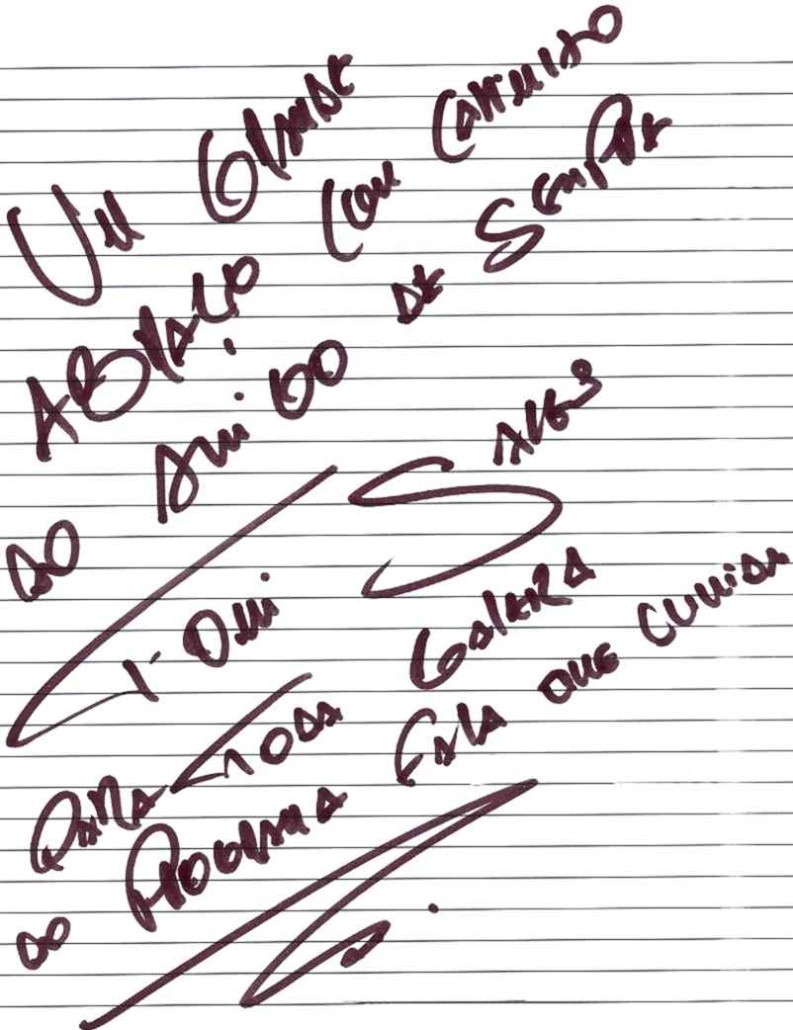 Um GRANDE
ABRAÇO Com CARINHO
AO AMiGO DE SEMPRE
TONI SALES
PARA TODA GALERA
DO PROGRAMA FALA QUE